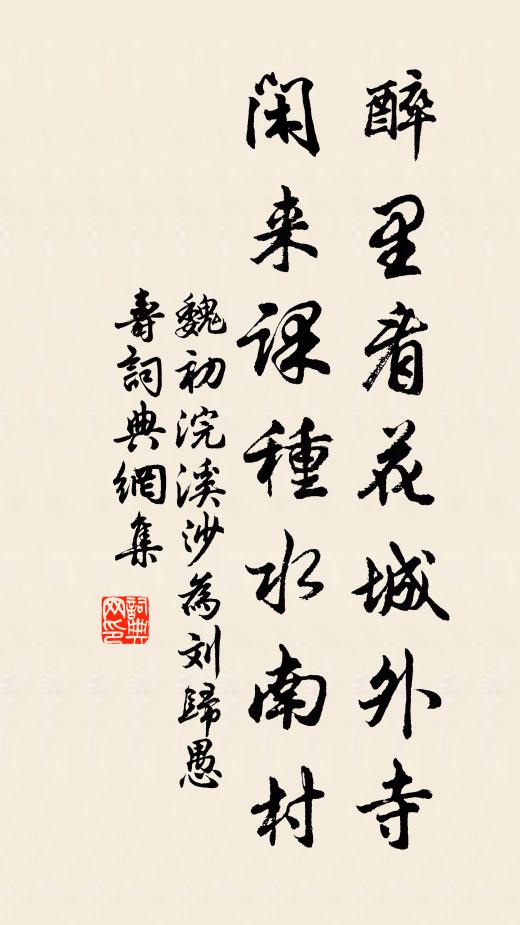 醉里看花城外寺
闲来课種水南村
魏初浣溪沙為刘歸愚
壽詞典網集
詞典网印